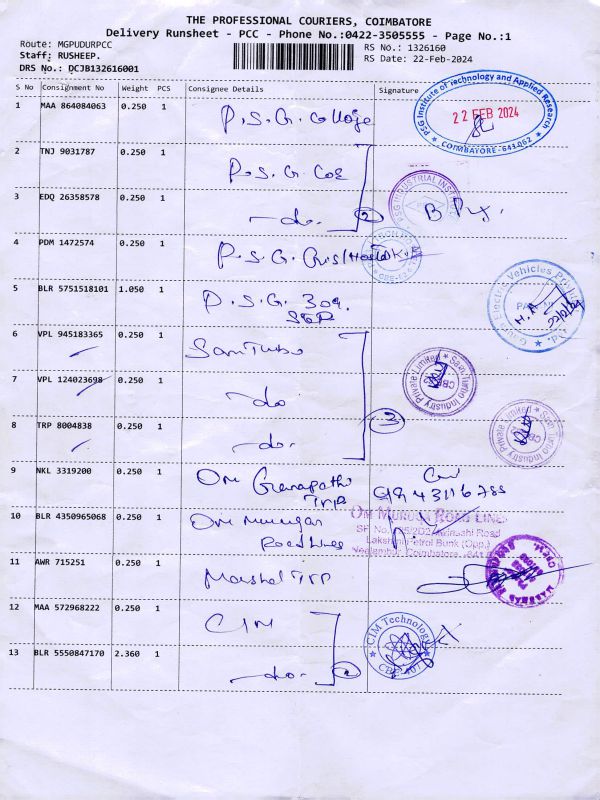 THE PROFESSIONAL COURIERS, COIMBATORE
Delivery Runsheet - PCC - Phone No.:0422-3505555 - Page No.:1
Route: MGPUDURPCC
RS No.: 1326160
Staff: RUSHEEP.
RS Date: 22-Feb-2024
DRS No.: DCJB132616001
S No Consignment No Weight PCS Consignee Details Signature
1 MAA 864084063 0.250 1 P.S.G. College
PSG Institute of Technology and Applied Research
22 FEB 2024
COIMBATORE-641 062
2 TNJ 9031787 0.250 1 P.S.G. COE
3 EDQ 26358578 0.250 1 -do. 2
PSG INDUSTRIAL INSTI
4 PDM 1472574 0.250 1 P.S.G.
5 BLR 5751518101 1.050 1 P.S.G.
Electric Vehicles Pri
6 VPL 945183365 0.250 1 Sam Turbo
7 VPL 124023698 0.250 1 -do.
Sam Turbo Industry Private Limited
8 TRP 8004838 0.250 1 -do. 3
Sam Turbo Industry Private Limited
9 NKL 3319200 0.250 1 Om Ganapathi
10 BLR 4350965068 0.250 1 Om Murugan
Road Lines
OM MURUGAN ROAD LINES
Avinashi Road
Lakshmi Petrol Bunk (Opp.)
Neelambur, Coimbatore
11 AWR 715251 0.250 1 Marshal
12 MAA 572968222 0.250 1 CIM
CIM Technology
13 BLR 5550847170 2.360 1 -do.